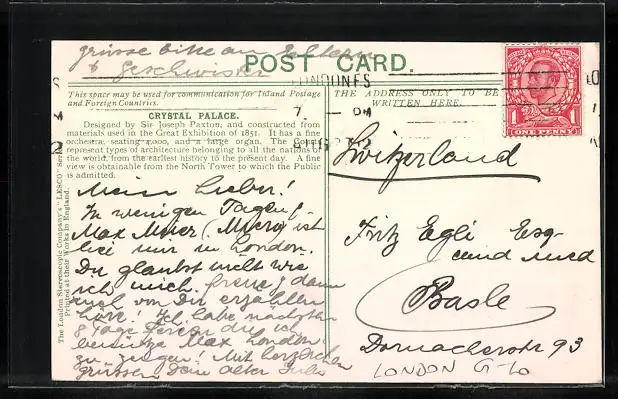 grüsse bitte an Eltern
& Geschwister
POST CARD.
LONDON F.S
This space may be used for communication for Inland Postage
and Foreign Countries.
THE ADDRESS ONLY TO BE
WRITTEN HERE.
ONE PENNY
CRYSTAL PALACE.
Designed by Sir Joseph Paxton, and constructed from
materials used in the Great Exhibition of 1851. It has a fine
orchestra, seating 4,000, and a large organ. The Courts
represent types of architecture belonging to all the nations of
the world, from the earliest history to the present day. A fine
view is obtainable from the North Tower to which the Public
is admitted.
The London Stereoscopic Company's "LESCO" Series
Printed at their Works in England.
Mein Lieber!
In wenigen Tagen
Max Meier (Micro) ist
bei mir in London.
Du glaubst nicht wie
ich mich freue dann
auch von Dir erzählen
höre! Ich habe nächstens
8 Tage Ferien die ich
benütze Max London
zu zeigen! Mit herzlichen
grüssen Dein alter Julis
Switzerland
Fritz Egli Esq.
cand med
Basle
Dornacherstr 93
LONDON